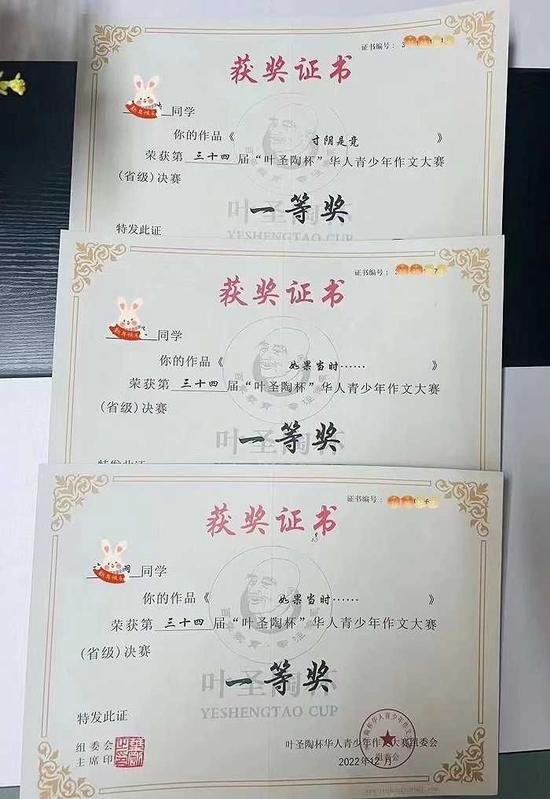 证书编号：
获奖证书
同学
你的作品《 寸阴是竞 》
荣获第 三十四 届“叶圣陶杯”华人青少年作文大赛
(省级)决赛
一等奖
叶圣陶杯
特发此证
YESHENGTAO CUP
证书编号：
获奖证书
同学
你的作品《 如果当时…… 》
荣获第 三十四 届“叶圣陶杯”华人青少年作文大赛
(省级)决赛
一等奖
叶圣陶杯
特发此证
证书编号：
获奖证书
同学
你的作品《 如果当时…… 》
荣获第 三十四 届“叶圣陶杯”华人青少年作文大赛
(省级)决赛
一等奖
叶圣陶杯
特发此证
YESHENGTAO CUP
组委会
主席印
叶圣陶杯华人青少年作文大赛组委会
2022年12月